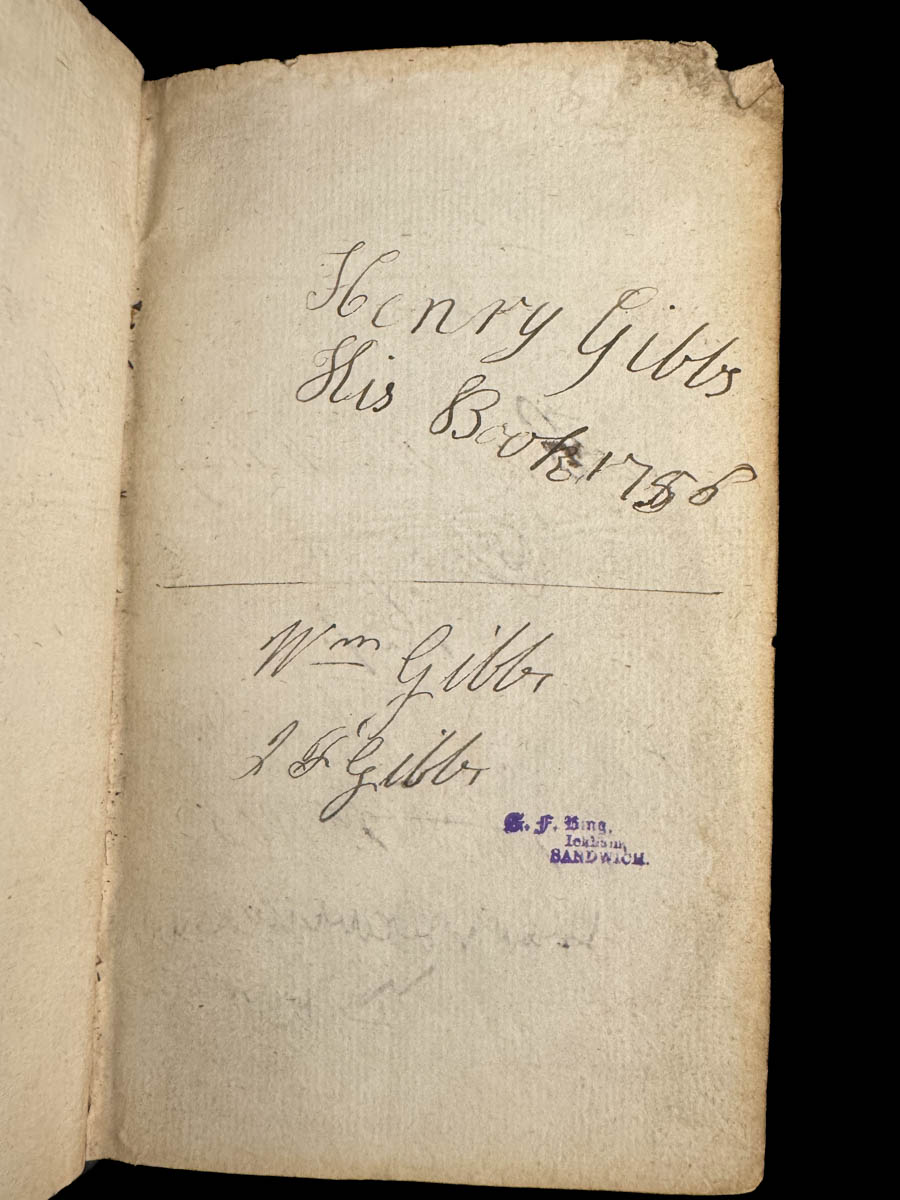 Henry Gibbs
His Book 1756
Wm Gibbs
Gibbs
F. Bing,
Ickham,
SANDWICH.